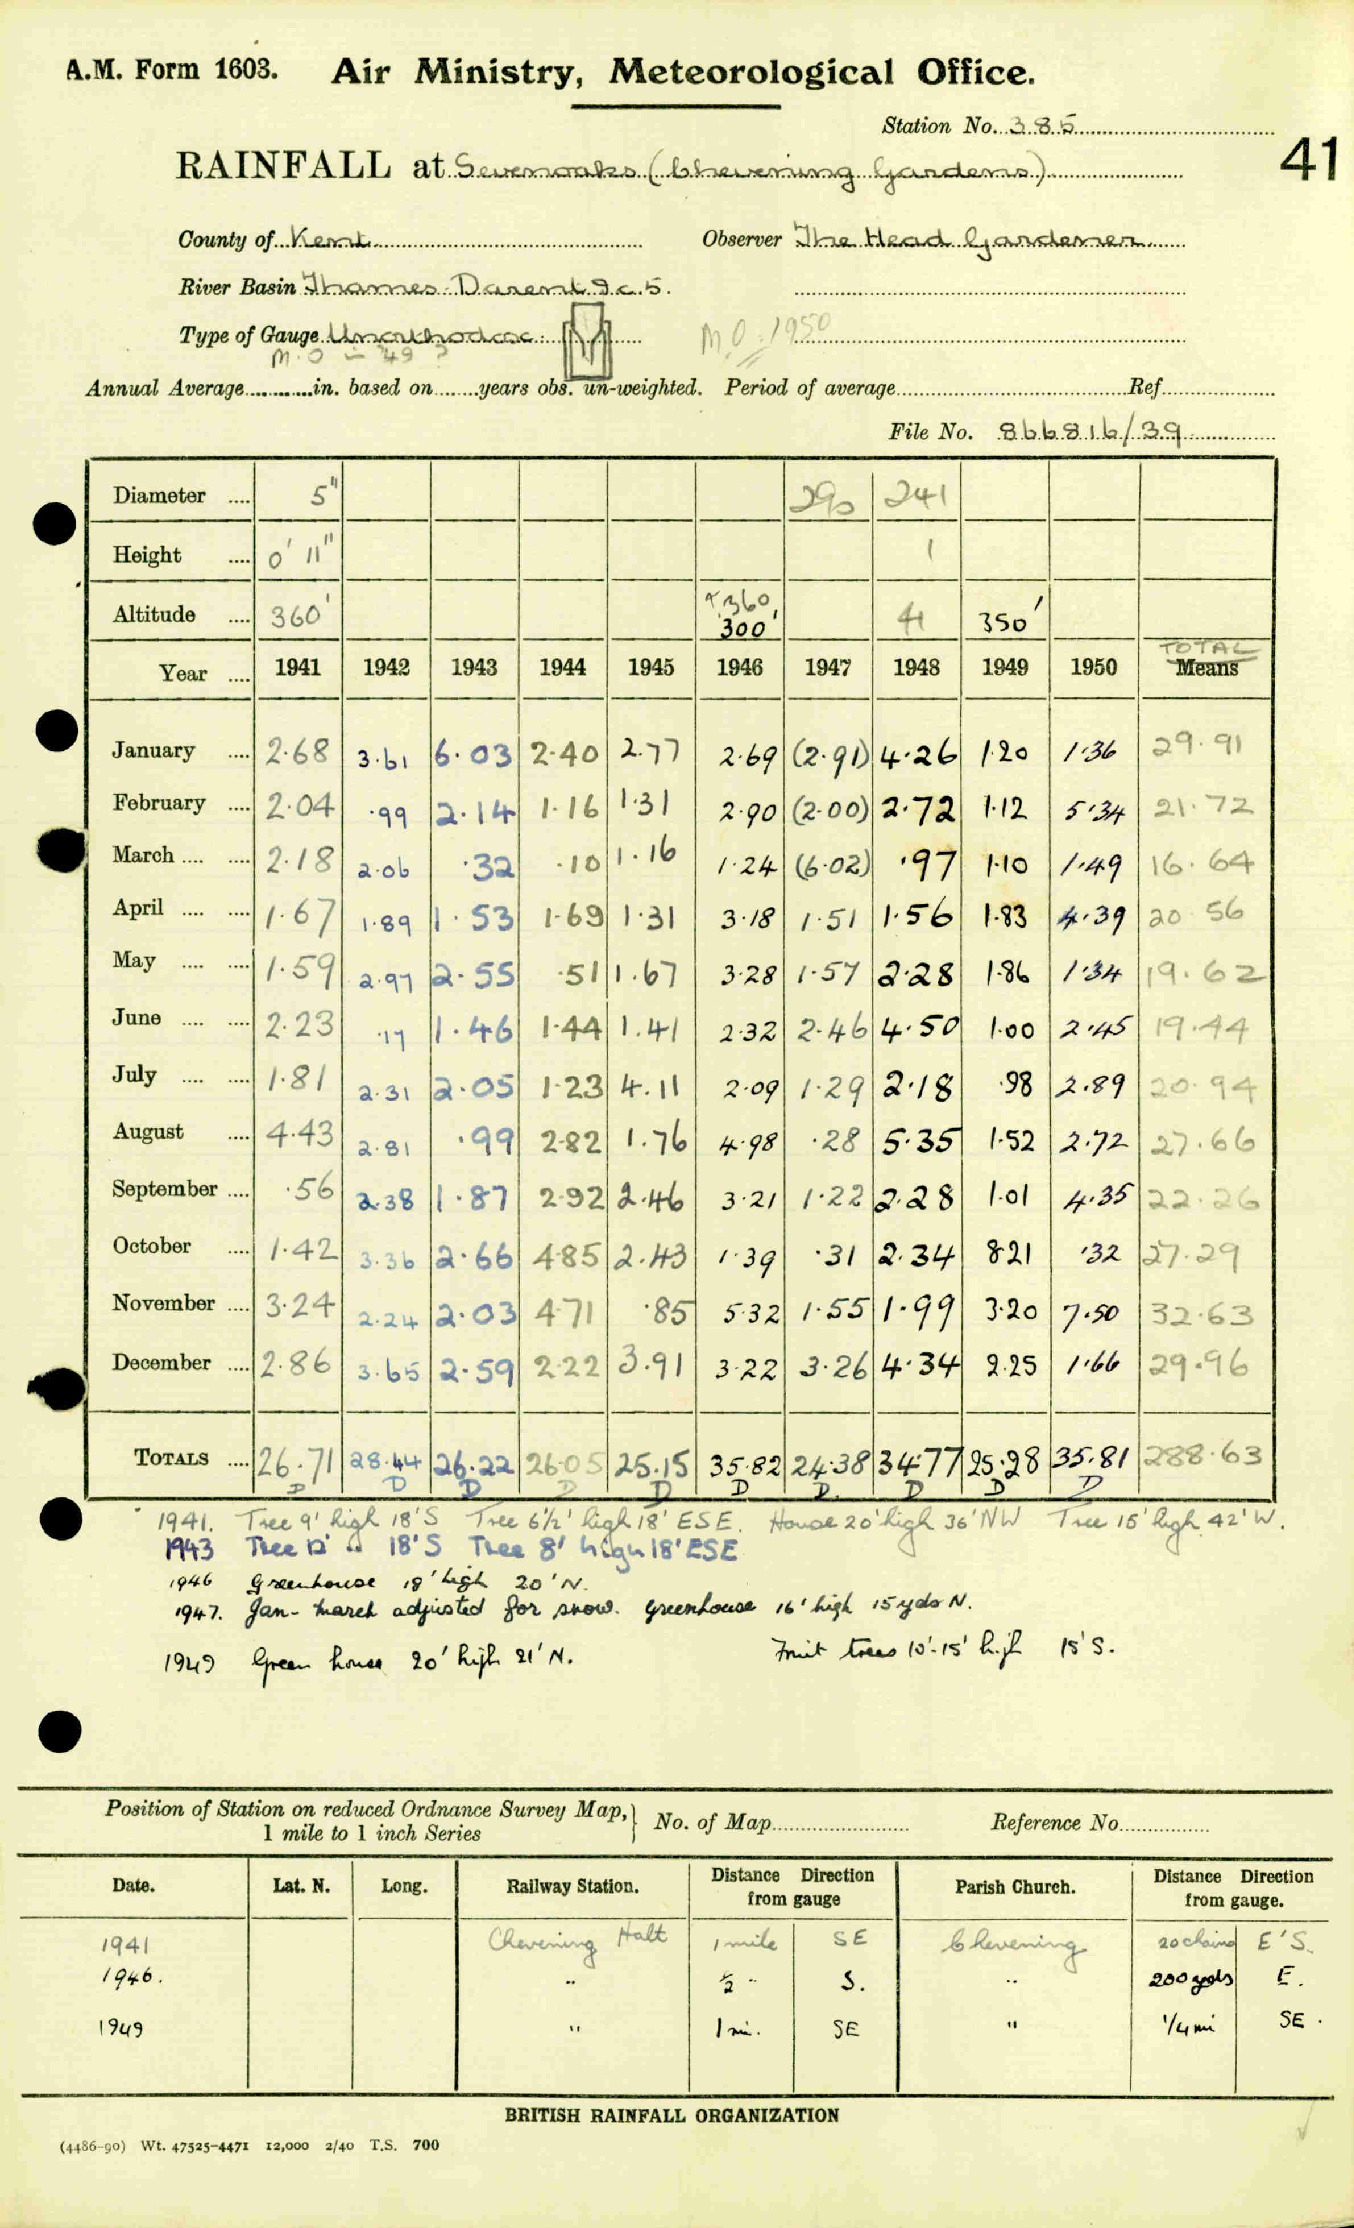 A.M. Form 1603. Air Ministry, Meteorological Office.
Station No. 385
41
RAINFALL at Sevenoaks (Chevening Gardens)
County of Kent Observer The Head Gardener
River Basin Thames Darent 9c.5.
Type of Gauge Unorthodox: M.O. 1950
M.O in '49 ?
Annual Average in. based on years obs. un-weighted. Period of average Ref.
File No. 866816/39
Diameter .... 5" 290 241
Height .... 0' 11" 1
Altitude .... 360' 360 300' 41 350'
TOTAL
Year .... 1941 1942 1943 1944 1945 1946 1947 1948 1949 1950 Means
January .... 2.68 3.61 6.03 2.40 2.77 2.69 (2.91) 4.26 1.20 1.36 29.91
February .... 2.04 .99 2.14 1.16 1.31 2.90 (2.00) 2.72 1.12 5.34 21.72
March .... .... 2.18 2.06 .32 .10 1.16 1.24 (6.02) .97 1.10 1.49 16.64
April .... .... 1.67 1.89 1.53 1.69 1.31 3.18 1.51 1.56 1.83 4.39 20 56
May .... .... 1.59 2.97 2.55 .51 1.67 3.28 1.57 2.28 1.86 1.34 19.62
June .... .... 2.23 .17 1.46 1.44 1.41 2.32 2.46 4.50 1.00 2.45 19.44
July .... .... 1.81 2.31 2.05 1.23 4.11 2.09 1.29 2.18 .98 2.89 20.94
August .... 4.43 2.81 .99 2.82 1.76 4.98 .28 5.35 1.52 2.72 27.66
September .... .56 2.38 1.87 2.92 2.46 3.21 1.22 2.28 1.01 4.35 22.26
October .... 1.42 3.36 2.66 4.85 2.43 1.39 .31 2.34 8.21 .32 27.29
November .... 3.24 2.24 2.03 4.71 .85 5.32 1.55 1.99 3.20 7.50 32.63
December .... 2.86 3.65 2.59 2.22 3.91 3.22 3.26 4.34 2.25 1.66 29.96
TOTALS .... 26.71 28.44 26.22 26.05 25.15 35.82 24.38 34.77 25.28 35.81 288.63
D D D D D D D D D D
1941. Tree 9' high 18'S Tree 6½' high 18' ESE. House 20' high 36' NW Tree 15' high 42' W.
1943 Tree 12' " 18'S Tree 8' high 18' ESE
1946 Greenhouse 18' high 20' N.
1947. Jan-March adjusted for snow. Greenhouse 16' high 15 yds N.
1949 Green house 20' high 21' N. Fruit trees 10'-15' high 15' S.
Position of Station on reduced Ordnance Survey Map, 1 mile to 1 inch Series No. of Map Reference No.
Date. Lat. N. Long. Railway Station. Distance Direction from gauge Parish Church. Distance Direction from gauge.
1941 Chevening Halt 1 mile SE Chevening 20 chains E'S.
1946. " ½ " S. " 200 yds E.
1949 " 1 mi. SE " 1/4 mi SE.
BRITISH RAINFALL ORGANIZATION
(4486-90) Wt. 47525-4471 12,000 2/40 T.S. 700